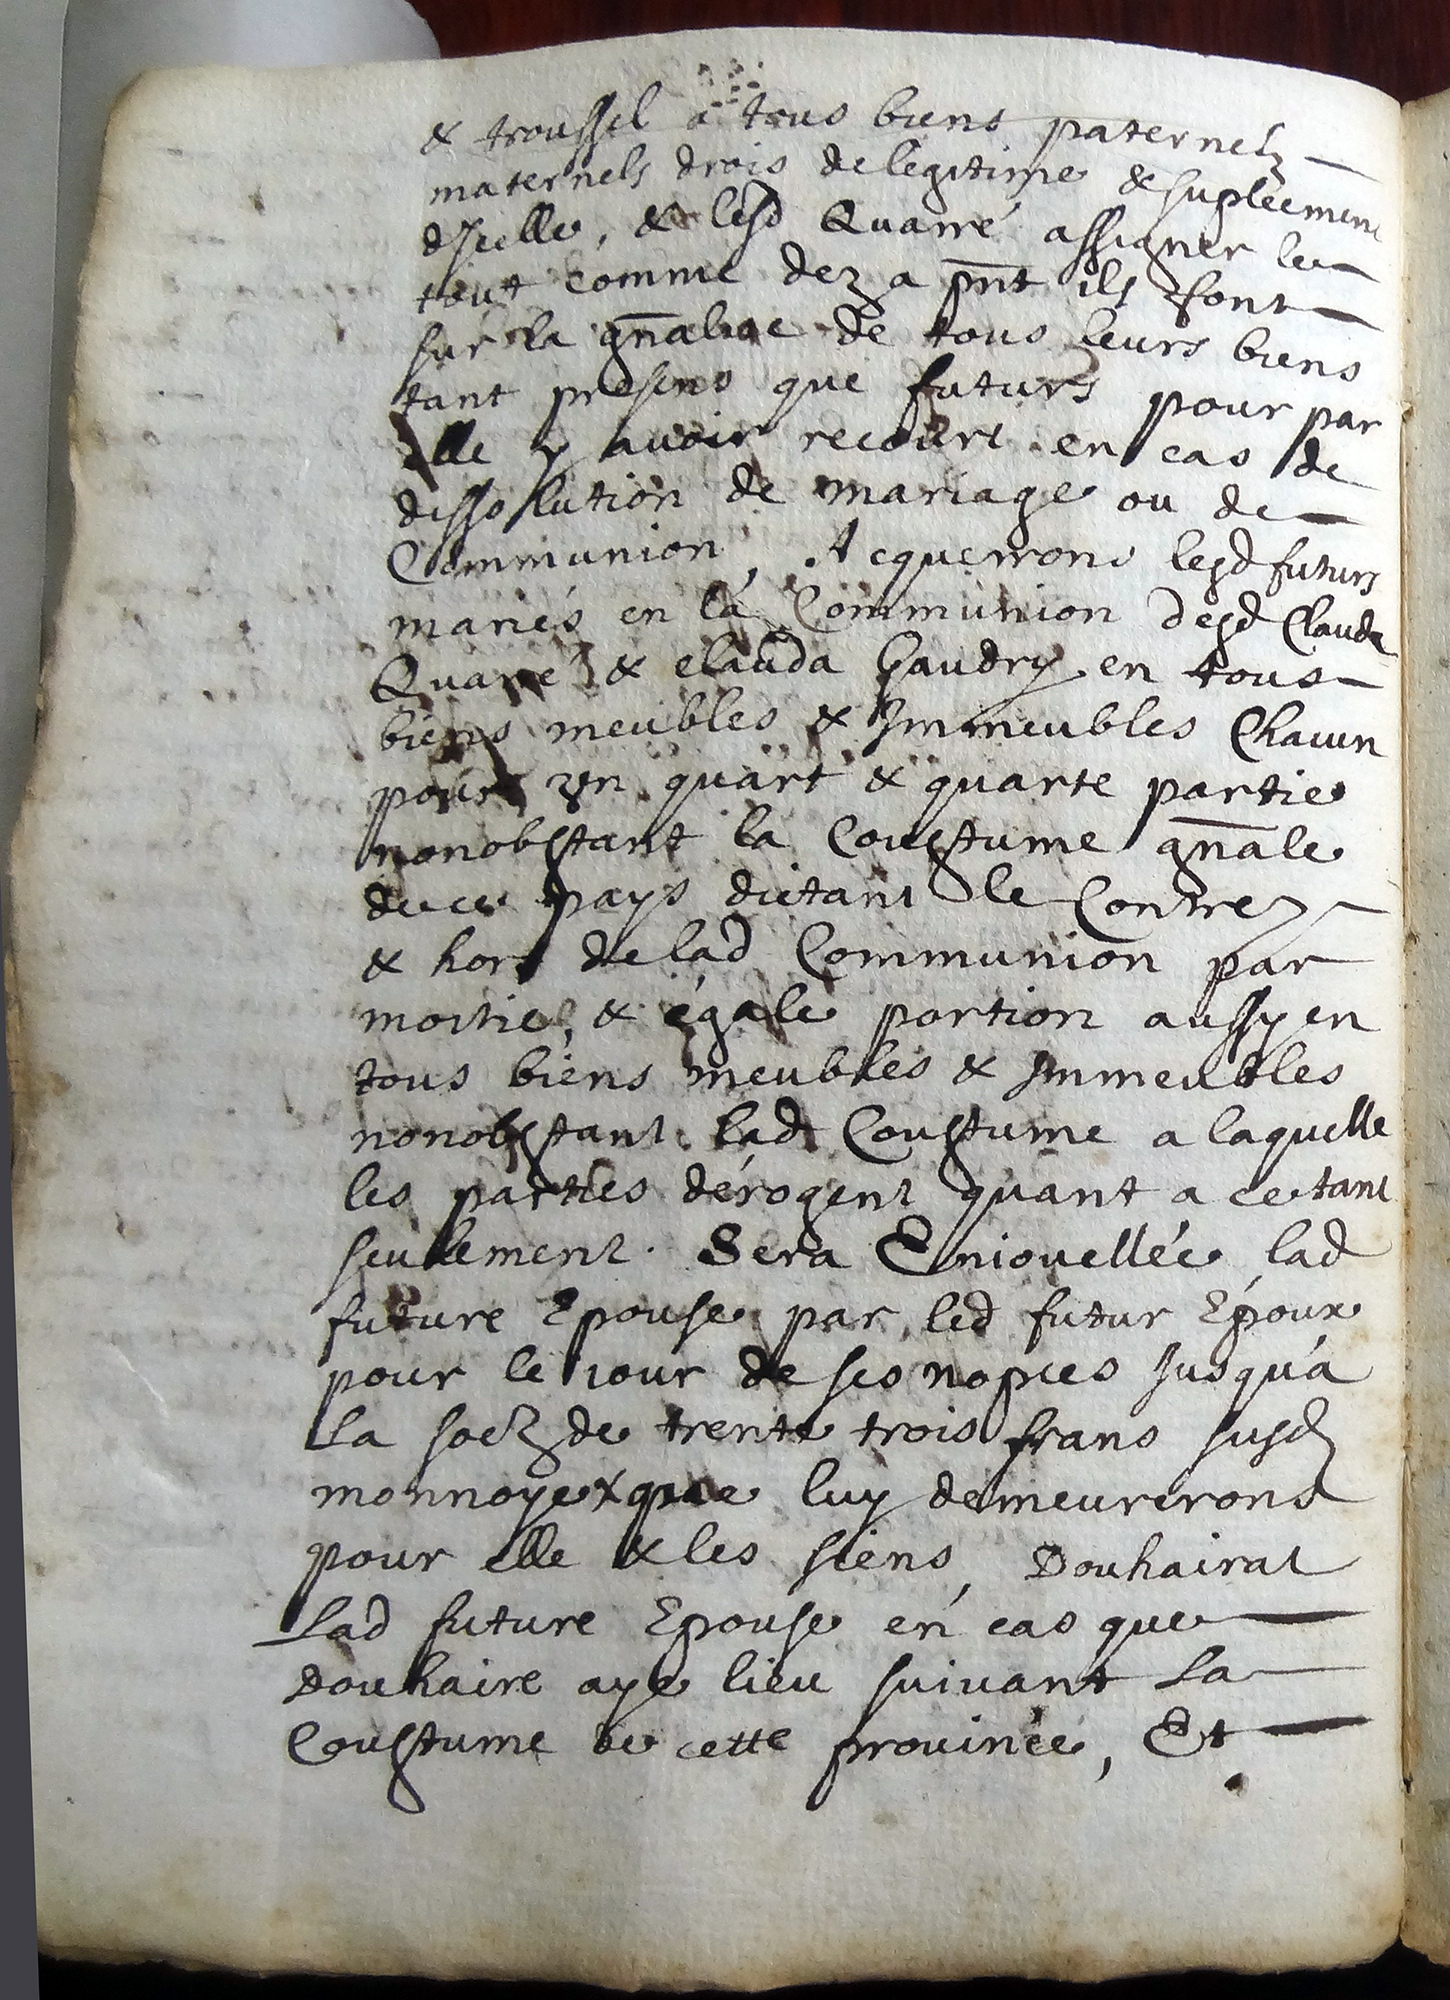 & troussel a tous biens paternelz
maternels drois de legitime & supleement
d'Icelle, & lesd Quarré assigner le
tout comme dez a pñt ils font
sur la gñalité de tous leurs biens
tant presens que futurs pour par
elle y avoir recourt en cas de
dissolution de mariage ou de
Communion, Acquerront lesd futurs
mariés en la Communion desd Claude
Quarré & clauda Gaudry en tous
biens meubles & Immeubles Chacun
pour vn quart & quarte partie
nonobstant la Coustume gñale
de ce pays dictant le Contre
& hors de lad Communion par
moitie, & égale portion aussy en
tous biens meubles & Immeubles
nonobstant lad Coustume a laquelle
les parties dérogent quant a ce tant
seulement. Sera Eniouellée lad
future Epouse par led futur Epoux
pour le iour de ses nopces Jusqu'a
La soe de trente trois frans susd
monnoye que luy demeureront
pour elle & les siens, Douhairat
Lad future Epouse en cas que
Douhaire aye lieu suiuant La
Coustume de cette prouince, Et